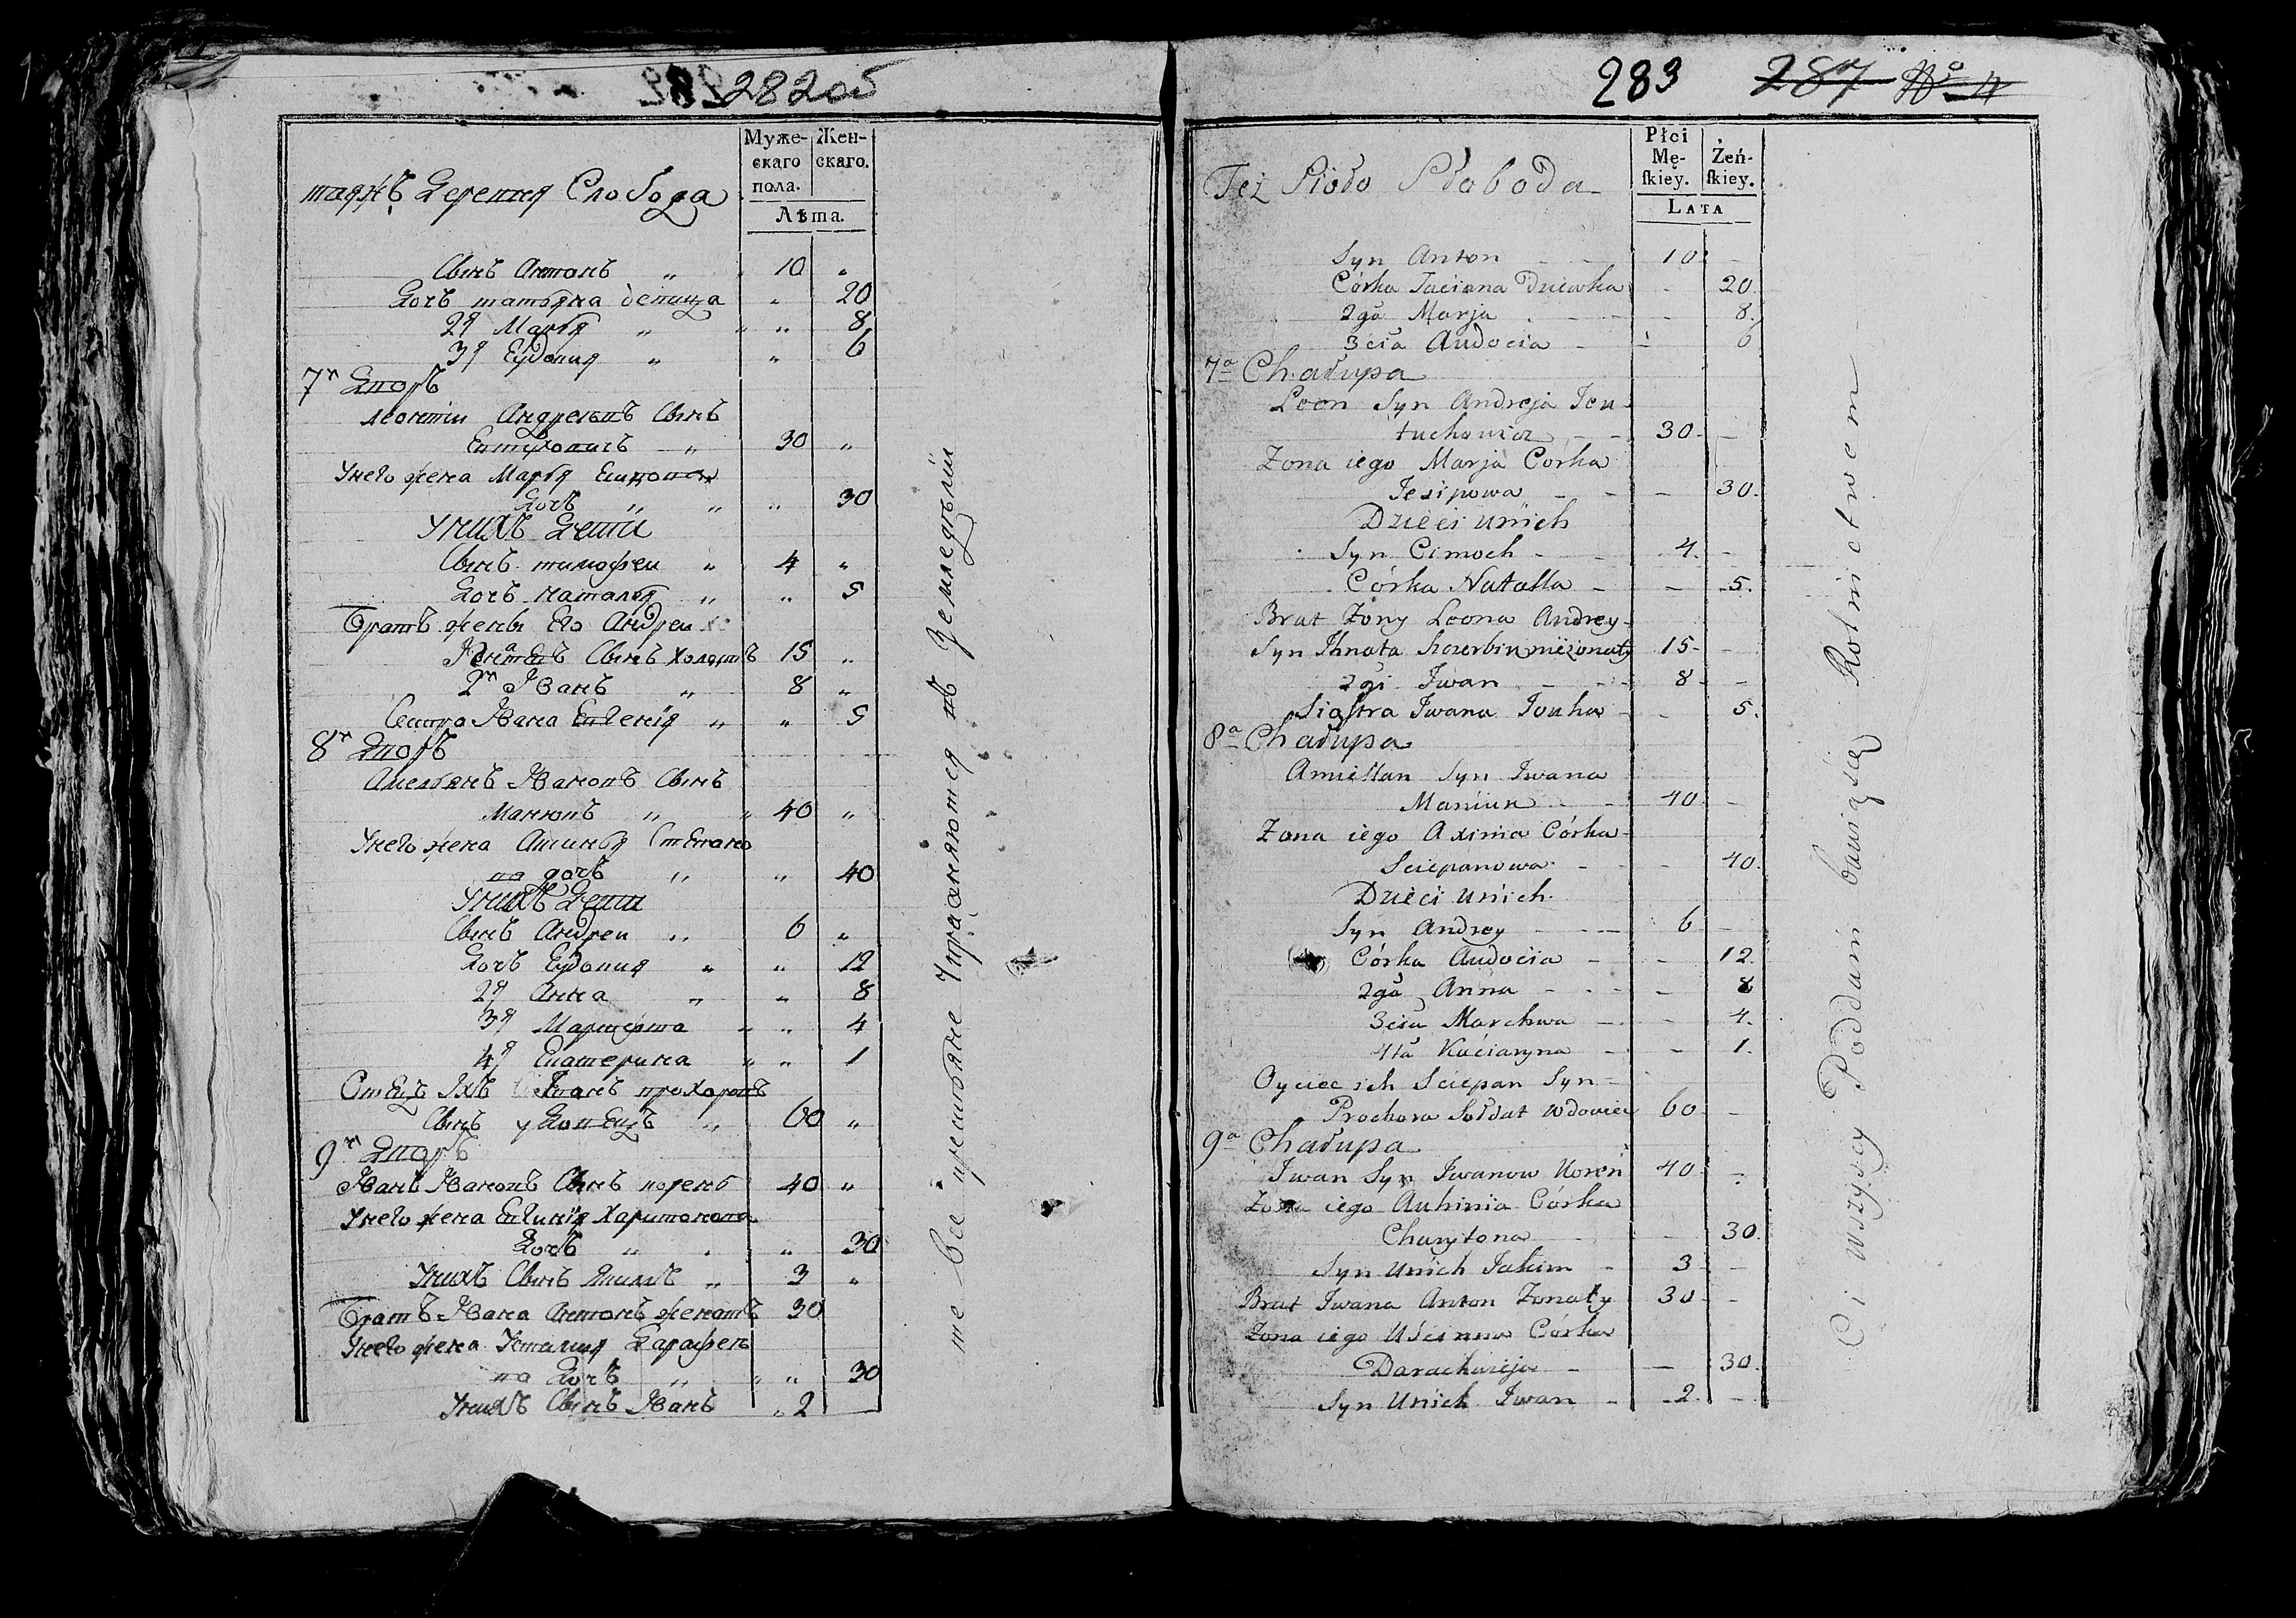 282об
Муже-
скаго
пола.
Жен-
скаго.
Лѣта.
таяжъ Деревня Слобода
Сынъ Антонъ „ 10 „
Дочъ татьяна девица „ 20
2я Марья „ „ 8
3я Еудокия „ „ 6
7й Дворъ
леонтии Андреевъ Сынъ
Евтуховичъ „ 30 „
Унего жена Марья
Дочъ „ „ „ 30
Унихъ Дети
Сынъ тимофеи „ 4 „
Дочъ наталья „ „ 5
Братъ жены Его Андреи
Сынъ холостъ 15 „
2й Иванъ „ 8 „
Сестра Ивана Евгения „ „ 5
8й Дворъ
Амельянъ Ивановъ Сынъ
Манюкъ „ „ 40 „
Унего жена Аксинья Степано
ва дочъ „ „ 40
Унихъ Дети
Сынъ Андреи „ 6 „
Дочъ Еудокия „ „ 12
2я Анна „ „ 8
3я Марфа „ „ 4
4я Екатерина „ „ 1
Отецъ Ихъ Степанъ прохоровъ
Сынъ удовецъ „ 60 „
9й Дворъ
Иванъ Ивановъ Сынъ корень 40 „
Унего жена Евгиния Харитонова
Дочъ „ „ „ 30
Унихъ Сынъ Якимъ „ 3 „
Братъ Ивана Антонъ женатъ 30
Унего жена Устиния Дарафее
ва Дочъ „ „ „ 30
Унихъ Сынъ Иванъ „ 2
те все крестьяне упражняются въ земледелии
283 287 No 4
Płci
Mę-
skiey.
Żeń-
skiey.
LATA
Też Sioło Słoboda
Syn Anton - 10 -
Córka Taciana Dziewka - 20.
2ga Marja - - 8.
3cia Audocia - - 6
7a Chałupa
Leon Syn Andreja Jeu
tuchowicz - 30 -
Zona iego Marja Corka
Jesipowa - - 30.
Dzieci unich
Syn Cimoch - 4. -
Córka Natalla - - 5.
Brat Zony Leona Andrey
Syn Ihnata Szczerbin nieżonaty 15 -
2gi Iwan - 8 -
Siostra Iwana Jouha - 5.
8a Chałupa
Amiellan Syn Iwana
Maniuk - 40 -
Zona iego Axinia Córka
Sciepanowa - - 40.
Dzieci unich.
Syn Andrey - 6 -
Córka Audocia - - 12.
2ga Anna - - 8
3cia Marchwa - - 4.
4ta Kaciaryna - - 1.
Oyciec ich Sciepan Syn
Prochora Sołdat wdowiec 60 -
9a Chałupa
Iwan Syn Iwanow Koreń 40 -
Zona iego Auhinia Córka
Charytona - 30.
Syn Unich Jakim - 3 -
Brat Iwana Anton Zonaty 30 -
Zona iego Uścinnia Córka
Darachwieja - - 30.
Syn Unich Iwan - 2 -
Ci wszyscy Poddani bawią się Rolnictwem